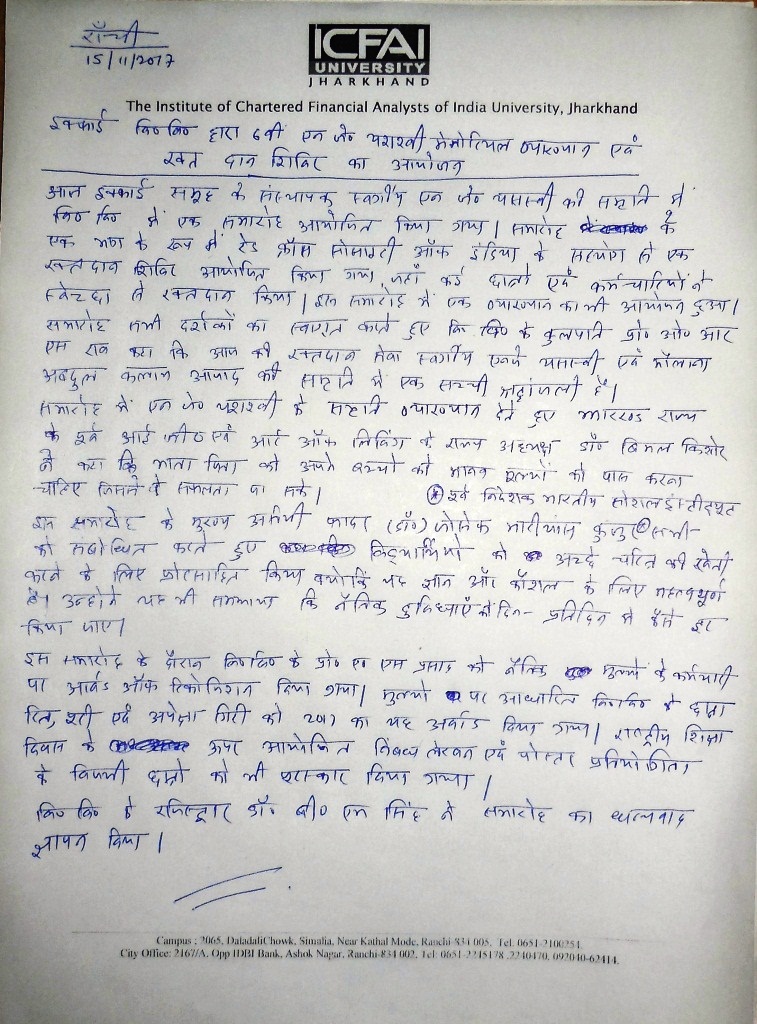 राँची
15/11/2017
ICFAI
UNIVERSITY
JHARKHAND
The Institute of Chartered Financial Analysts of India University, Jharkhand
इक्फाई वि० वि० द्वारा 6वीं एन जे० यशस्वी मेमोरियल व्याख्यान एवं
रक्त दान शिविर का आयोजन
आज इक्फाई समूह के संस्थापक स्वर्गीय एन जे० यसस्वी की स्मृति में
वि० वि० में एक समारोह आयोजित किया गया। समारोह के
एक भाग के रूप में रेड क्रॉस सोसाइटी ऑफ इंडिया के सहयोग से एक
रक्तदान शिविर आयोजित किया गया, जहाँ कई छात्रों एवं कर्मचारियों ने
स्वेच्छा से रक्तदान किया। इस समारोह में एक व्याख्यान का भी आयोजन हुआ।
समारोह सभी दर्शकों का स्वागत करते हुए वि० वि० के कुलपति प्रो० ओ० आर
एस राव कहा कि आज की रक्तदान सेवा स्वर्गीय एनजे यसस्वी एवं मौलाना
अबदुल कलाम आजाद की स्मृति में एक सच्ची श्रद्धांजली है।
समारोह में एन जे० यशस्वी के स्मृति व्याख्यान देते हुए झारखंड राज्य
के पूर्व आई जी० एवं आर्ट ऑफ लिविंग के राज्य अध्यक्ष डॉ० बिमल किशोर
ने कहा कि माता पिता को अपने बच्चों को मानव मूल्यों को पास करना
चाहिए जिससे वे सफलता पा सके। * पूर्व निदेशक भारतीय सोशल इंस्टीट्यूट
इस समारोह के मुख्य अतिथी फादर (डॉ०) जोसेफ मारीयास कुजुर * सभी
को संबोधित करते हुए विद्यार्थियों को अच्छे चरित्र की खेती
करने के लिए प्रोत्साहित किया क्योंकि यह ज्ञान और कौशल के लिए महत्वपूर्ण
है। उन्होंने यह भी समझाया कि नैतिक दुविधाएँ को दिन-प्रतिदिन से कैसे दूर
किया जाए।
इस समारोह के दौरान वि० वि० के प्रो० एस एम प्रसाद को नैतिक मूल्यों के कर्मचारी
पर आर्वड ऑफ रिकोनिशन दिया गया। मूल्यों पर आधारित वि० वि० के छात्रा
एवं अपेक्षा गिरी को 2017 का यह अर्वाड दिया गया। राष्ट्रीय शिक्षा
दिवस के ऊपर आयोजित निबंध लेखन एवं पोस्टर प्रतियोगिता
के विजयी छात्रों को भी पुरस्कार दिया गया।
वि० वि० के रजिस्ट्रार डॉ० बी० एम सिंह ने समारोह का धन्यवाद
ज्ञापन किया।
Campus : 2065, DaladaliChowk, Simalia, Near Kathal Mode, Ranchi-834 005, Tel. 0651-2100254.
City Office: 2167/A, Opp IDBI Bank, Ashok Nagar, Ranchi-834 002, Tel: 0651-2245178, 2240470, 092040-62414.